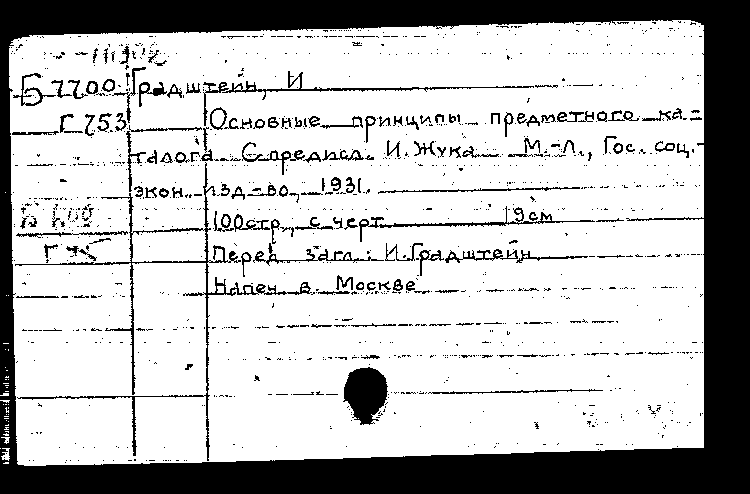 Б 7700 Градштейн, И
Г 753 Основные принципы предметного ка-
талога. С предисл. И. Жука М.-Л., Гос. соц.-
экон. изд-во, 1931.
100 стр., с черт. 19 см
Перед загл.: И. Градштейн
Напеч в. Москве